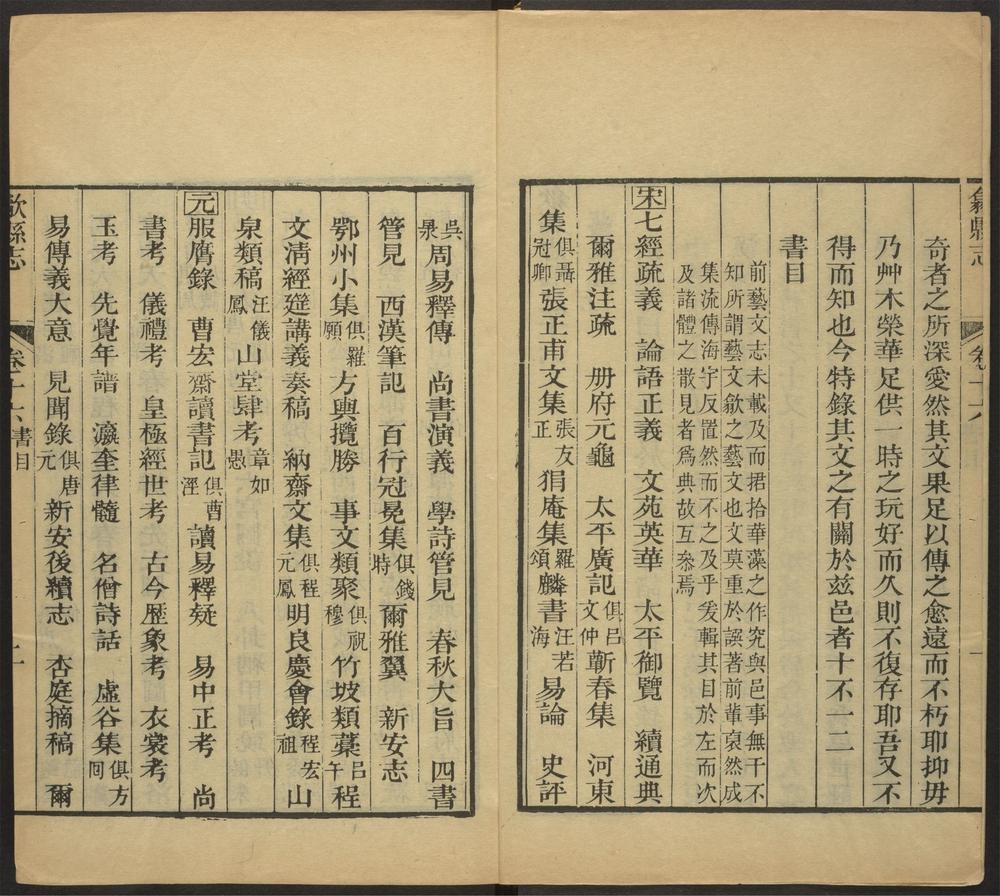 歙縣志 卷十六 一
奇者之所深愛然其文果足以傳之愈遠而不朽耶抑毋
乃艸木榮華足供一時之玩好而久則不復存耶吾又不
得而知也今特錄其文之有關於茲邑者十不一二
書目
前藝文志未載及而捃拾華藻之作究與邑事無干不
知所謂藝文歙之藝文也文莫重於譔著前輩裒然成
集流傳海宇反置然而不之及乎爰輯其目於左而次
及諸體之散見者爲典故互叅焉
宋七經疏義 論語正義 文苑英華 太平御覽 續通典
爾雅注疏 册府元龜 太平廣記俱呂文仲 蘄春集 河東
集俱聶冠卿 張正甫文集張友正 狷庵集羅頌 麟書汪若海 易論 史評
吳㫤 周易釋傳 尚書演義 學詩管見 春秋大旨 四書
管見 西漢筆記 百行冠冕集俱錢時 爾雅翼 新安志
鄂州小集俱羅願 方輿攬勝 事文類聚俱祝穆 竹坡類藳呂午 程
文清經筵講義奏稿 納齋文集俱程元鳳 明良慶會錄程宏祖 山
泉類稿汪儀鳳 山堂肆考章如愚
元服膺錄 曹宏齋讀書記俱曹涇 讀易釋疑 易中正考 尚
書考 儀禮考 皇極經世考 古今歷象考 衣裳考
玉考 先覺年譜 瀛奎律髓 名僧詩話 虛谷集俱方囘
易傳義大意 見聞錄俱唐元 新安後續志 杏庭摘稿 爾
歙縣志 卷十六 書目 二